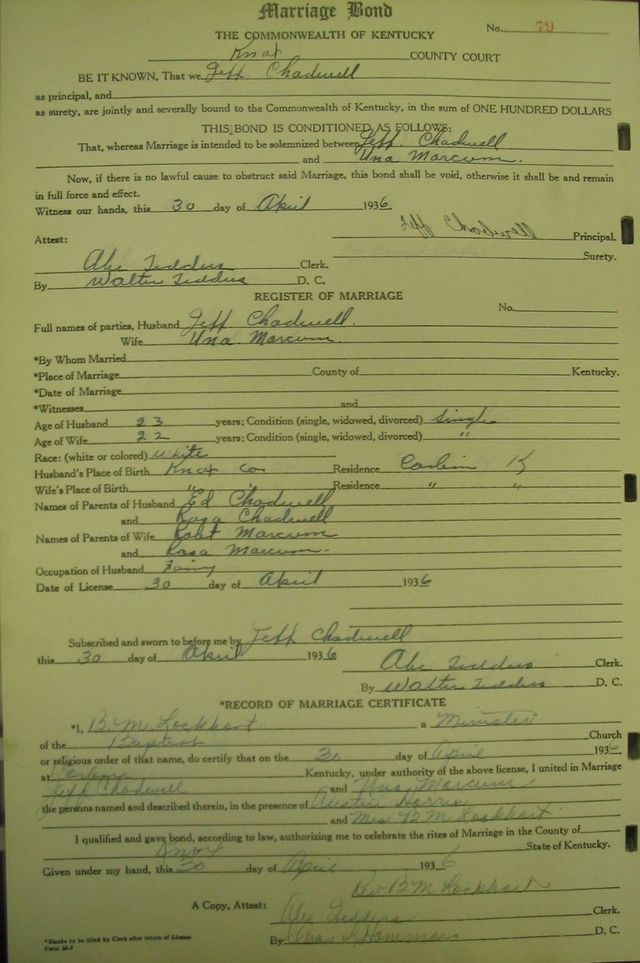 Marriage Bond
THE COMMONWEALTH OF KENTUCKY No. 79
Knox COUNTY COURT
BE IT KNOWN, That we Jeff Chadwell
as principal, and
as surety, are jointly and severally bound to the Commonwealth of Kentucky, in the sum of ONE HUNDRED DOLLARS
THIS BOND IS CONDITIONED AS FOLLOWS:
That, whereas Marriage is intended to be solemnized between Jeff Chadwell
and Una Marcum.
Now, if there is no lawful cause to obstruct said Marriage, this bond shall be void, otherwise it shall be and remain
in full force and effect.
Witness our hands, this 30 day of April 1936
Jeff Chadwell Principal.
Attest: Surety.
Abe Tedders Clerk.
By Walter Tedders D. C.
REGISTER OF MARRIAGE
No.
Full names of parties, Husband Jeff Chadwell.
Wife Una Marcum.
*By Whom Married
*Place of Marriage County of Kentucky.
*Date of Marriage
*Witnesses and
Age of Husband 23 years; Condition (single, widowed, divorced) Single
Age of Wife 22 years; Condition (single, widowed, divorced) "
Race: (white or colored) White
Husband's Place of Birth Knox Co Residence Corbin K
Wife's Place of Birth " " Residence " "
Names of Parents of Husband Ed Chadwell
and Rosa Chadwell
Names of Parents of Wife Robt Marcum
and Rosa Marcum.
Occupation of Husband
Date of License 30 day of April 1936
Subscribed and sworn to before me by Jeff Chadwell
this 30 day of April 1936
Abe Tedders Clerk.
By Walter Tedders D. C.
*RECORD OF MARRIAGE CERTIFICATE
*I, B. M. Lockhart a Minister
of the Baptist Church
or religious order of that name, do certify that on the 30 day of April 193
at Corbin Kentucky, under authority of the above license, I united in Marriage
Jeff Chadwell and Una Marcum
the persons named and described therein, in the presence of Austin Harris
and Mrs B M Lockhart.
I qualified and gave bond, according to law, authorizing me to celebrate the rites of Marriage in the County of
Knox State of Kentucky.
Given under my hand, this 30 day of April 1936
Rv B M Lockhart
A Copy, Attest: Abe Tedders Clerk.
By Hammons D. C.
*Blanks to be filled by Clerk after return of License
Form M-7